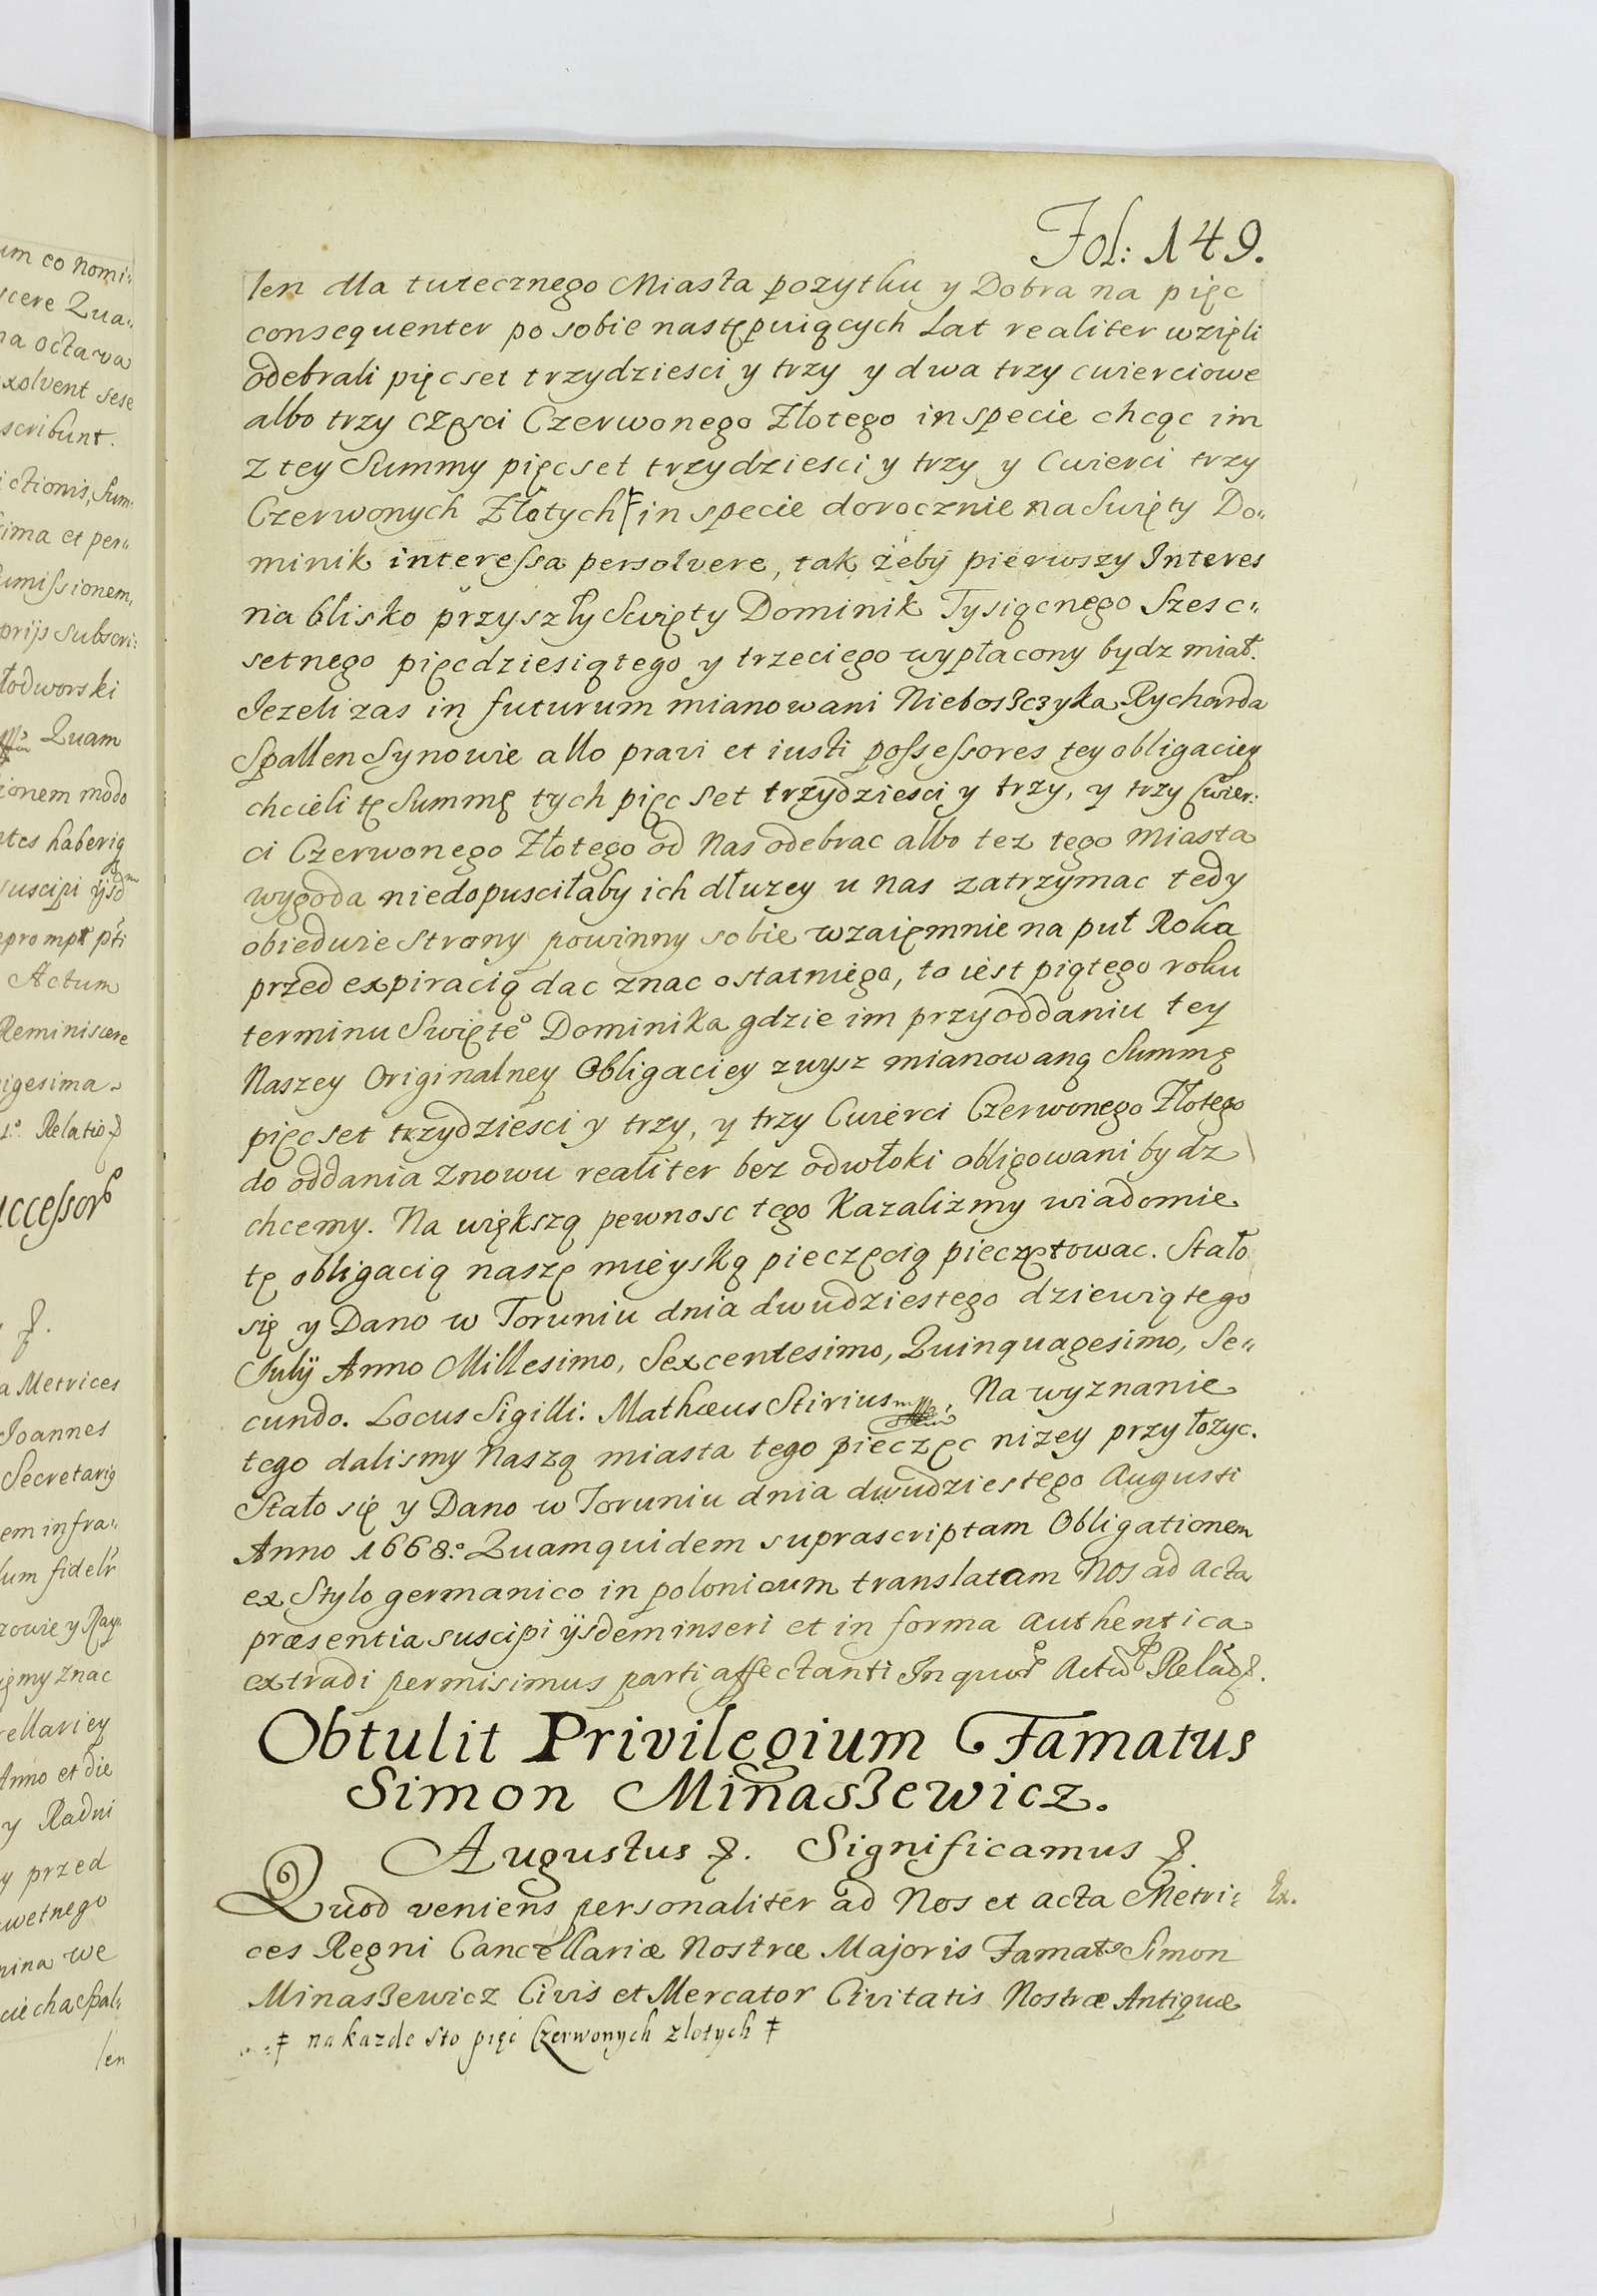 um co nomi:
scere Qua„
na octava
xolvent sese
scribunt.
ictionis, Sum
sima et per„
umissionem,
prijs subscri:
łodworski
Quam
ionem modo
ntes haberi
suscipi
prompt
Actum
Reminiscere
igesima
Relatio
uccessor
a Metrices
Joannes
Secretari
em infra„
lum fidelr
zowie y Ray
my znac
rellariey
Anno et die
y Radni
y przed
wetnego
nina we
ciecha Spal„
len
Fol: 149.
len dla tutecznego Miasta pozytku y Dobra na pięc
consequenter po sobie następuiących Lat realiter wzięli
odebrali pięcset trzydziesci y trzy y dwa trzy cwierciowe
albo trzy części Czerwonego Złotego in specie chcąc im
z tey Summy pięcset trzydziesci y trzy y Cwierci trzy
Czerwonych Złotych ‡ in specie dorocznie na Swięty Do„
minik interessa persolvere, tak żeby pierwszy Interes
na blisko przyszły Swięty Dominik Tysiącnego Szesc„
setnego pięcdziesiątego y trzeciego wypłacony bydz miał.
Jezeli zas in futurum mianowani Nieboszczyka Rycharda
Spallen Synowie albo pravi et iusti possessores tey obligaciey
chcieli tę Summę tych pięc set trzydziesci y trzy, y trzy Cwier:
ci Czerwonego Złotego od Nas odebrac albo tez tego miasta
wygoda niedopusciłaby ich dłuzey u nas zatrzymac tedy
obiedwie strony powinny sobie wzaięmnie na puł Roka
przed expiracią dac znac ostatniego, to iest piątego roku
terminu Swięte° Dominika gdzie im przy oddaniu tey
Naszey Originalney Obligaciey zwysz mianowaną Summę
pięcset trzydziesci y trzy, y trzy Cwierci Czerwonego Złotego
do oddania Znowu realiter bez odwłoki obligowani bydz
chcemy. Na większą pewnosc tego Kazalizmy wiadomie
tę obligacią naszę mieyską pieczęcią pieczętowac. Stało
się y Dano w Toruniu dnia dwudziestego dziewiątego
Julij Anno Millesimo, Sexcentesimo, Quinquagesimo, Se„
cundo. Locus Sigilli. Mathæus Stirius Na wyznanie
tego dalismy Naszą miasta tego pieczęc nizey przyłozyc.
Stało się y Dano w Toruniu dnia dwudziestego Augusti
Anno 1668.° Quamquidem suprascriptam Obligationem
ex Stylo germanico in polonicum translatam Nos ad acta
præsentia suscipi ijsdem inseri et in forma authentica
extradi permisimus parti affectanti In quor
Obtulit Privilegium Famatus
Simon Minaszewicz.
Augustus &. Significamus &.
Quod veniens personaliter ad Nos et acta Metri:
Ex.
ces Regni Cancellariæ Nostræ Majoris Famats Simon
Minaszewicz Civis et Mercator Civitatis Nostræ Antiquæ
‡ na kazde sto pięć Czerwonych złotych ‡